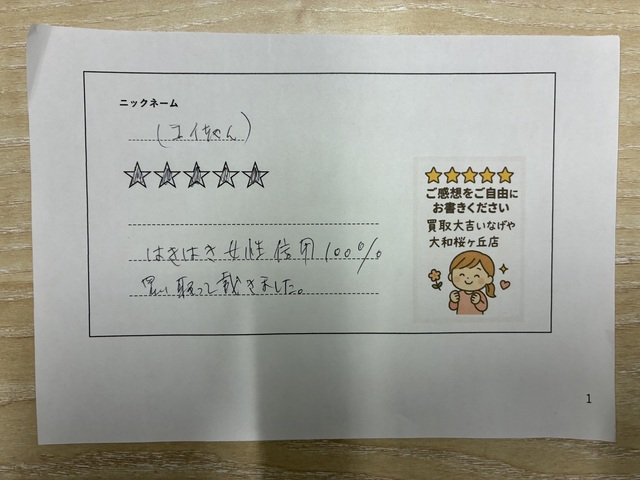 ニックネーム
(ユイちゃん)
はきはき女性信用100%
買い取って戴きました。
ご感想をご自由に
お書きください
買取大吉いなげや
大和桜ヶ丘店
1